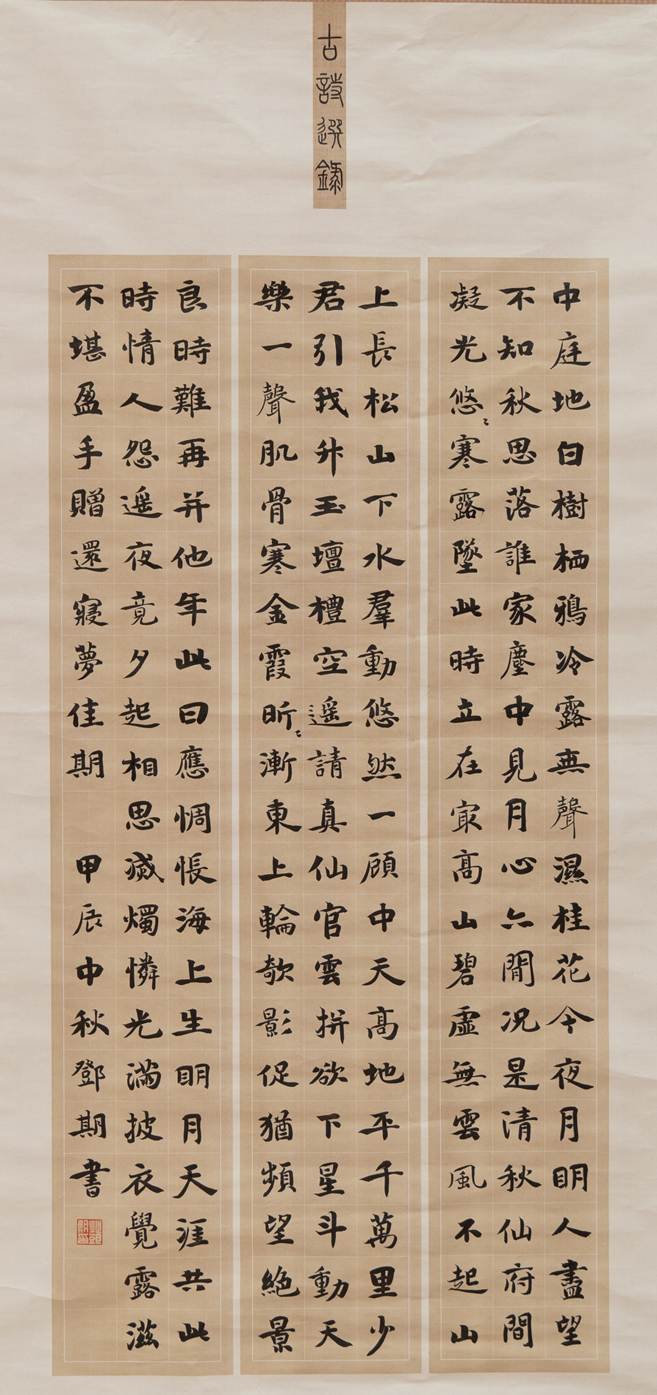 古詩選錄
中庭地白樹栖鴉冷露無聲濕桂花今夜月明人盡望
不知秋思落誰家塵中見月心亦閒況是清秋仙府間
凝光悠〻寒露墜此時立在冣高山碧虛無雲風不起山
上長松山下水羣動悠然一顧中天高地平千萬里少
君引我升玉壇禮空遥請真仙官雲拼欲下星斗動天
樂一聲肌骨寒金霞昕〻漸東上輪欹影促猶頻望絕景
良時難再并他年此日應惆悵海上生明月天涯共此
時情人怨遥夜竟夕起相思滅燭憐光滿披衣覺露滋
不堪盈手贈還寢夢佳期 甲辰中秋鄧期書